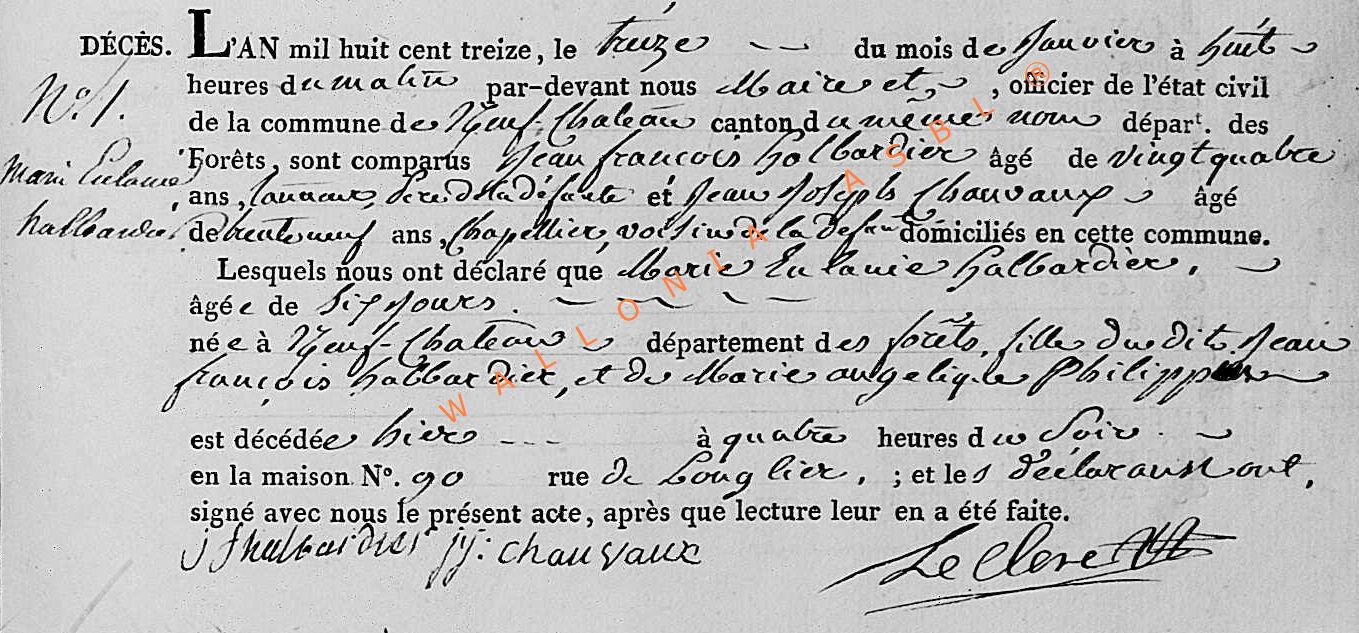 DÉCÈS. L'AN mil huit cent treize, le treize du mois de Janvier à huit
N.º 1. heures du matin par-devant nous Maire et, officier de l'état civil
de la commune de Neuf-Chateau canton du même nom départ. des
Marie Eulanie Forêts, sont comparus Jean françois halbardier âgé de vingt quatre
ans, tanneur, Pere de la défunte et Jean Joseph Chauvaux âgé
halbardier. de trente neuf ans, Chapellier, voisin de la defunte domiciliés en cette commune.
Lesquels nous ont déclaré que Marie Eulanie halbardier,
âgée de six Jours.
née à Neuf-Chateau département des forêts, fille du dit Jean
françois halbardier, et de Marie angelique Philippin
est décédée hier à quatre heures du Soir.
en la maison Nº. 90 rue de Longlier, ; et les déclarans ont,
signé avec nous le présent acte, après que lecture leur en a été faite.
j f halbardier jj: chauvaux Le Clerc
WALLONIA ASBL ®